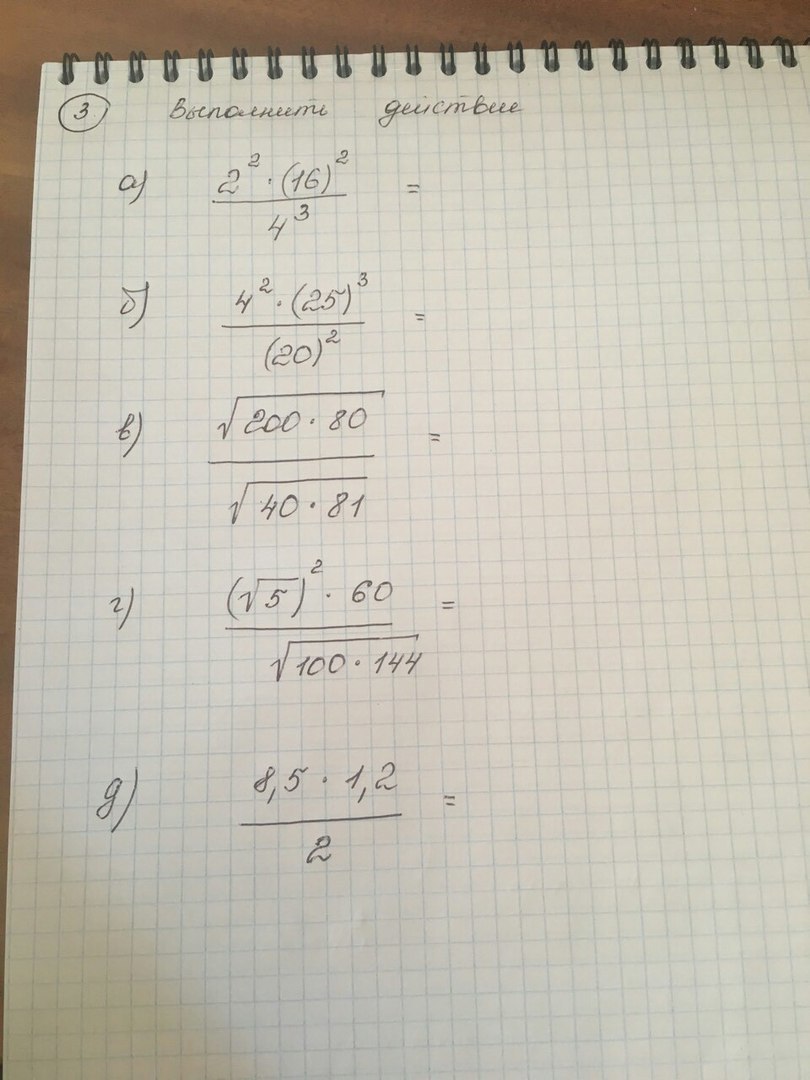 3 Выполнить действие
а) 2² · (16)² / 4³ =
б) 4² · (25)³ / (20)² =
в) √(200 · 80) / √(40 · 81) =
г) (√5)² · 60 / √(100 · 144) =
д) 8,5 · 1,2 / 2 =